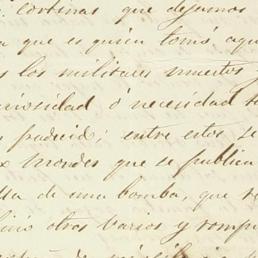 cortinas que dejamos
a que es quien tomó aqu
los militares muertos y
uriosidad ó necesidad
padecido; entre estos se
Mendes que se publica
lla de una bomba, que re
otros varios y romp